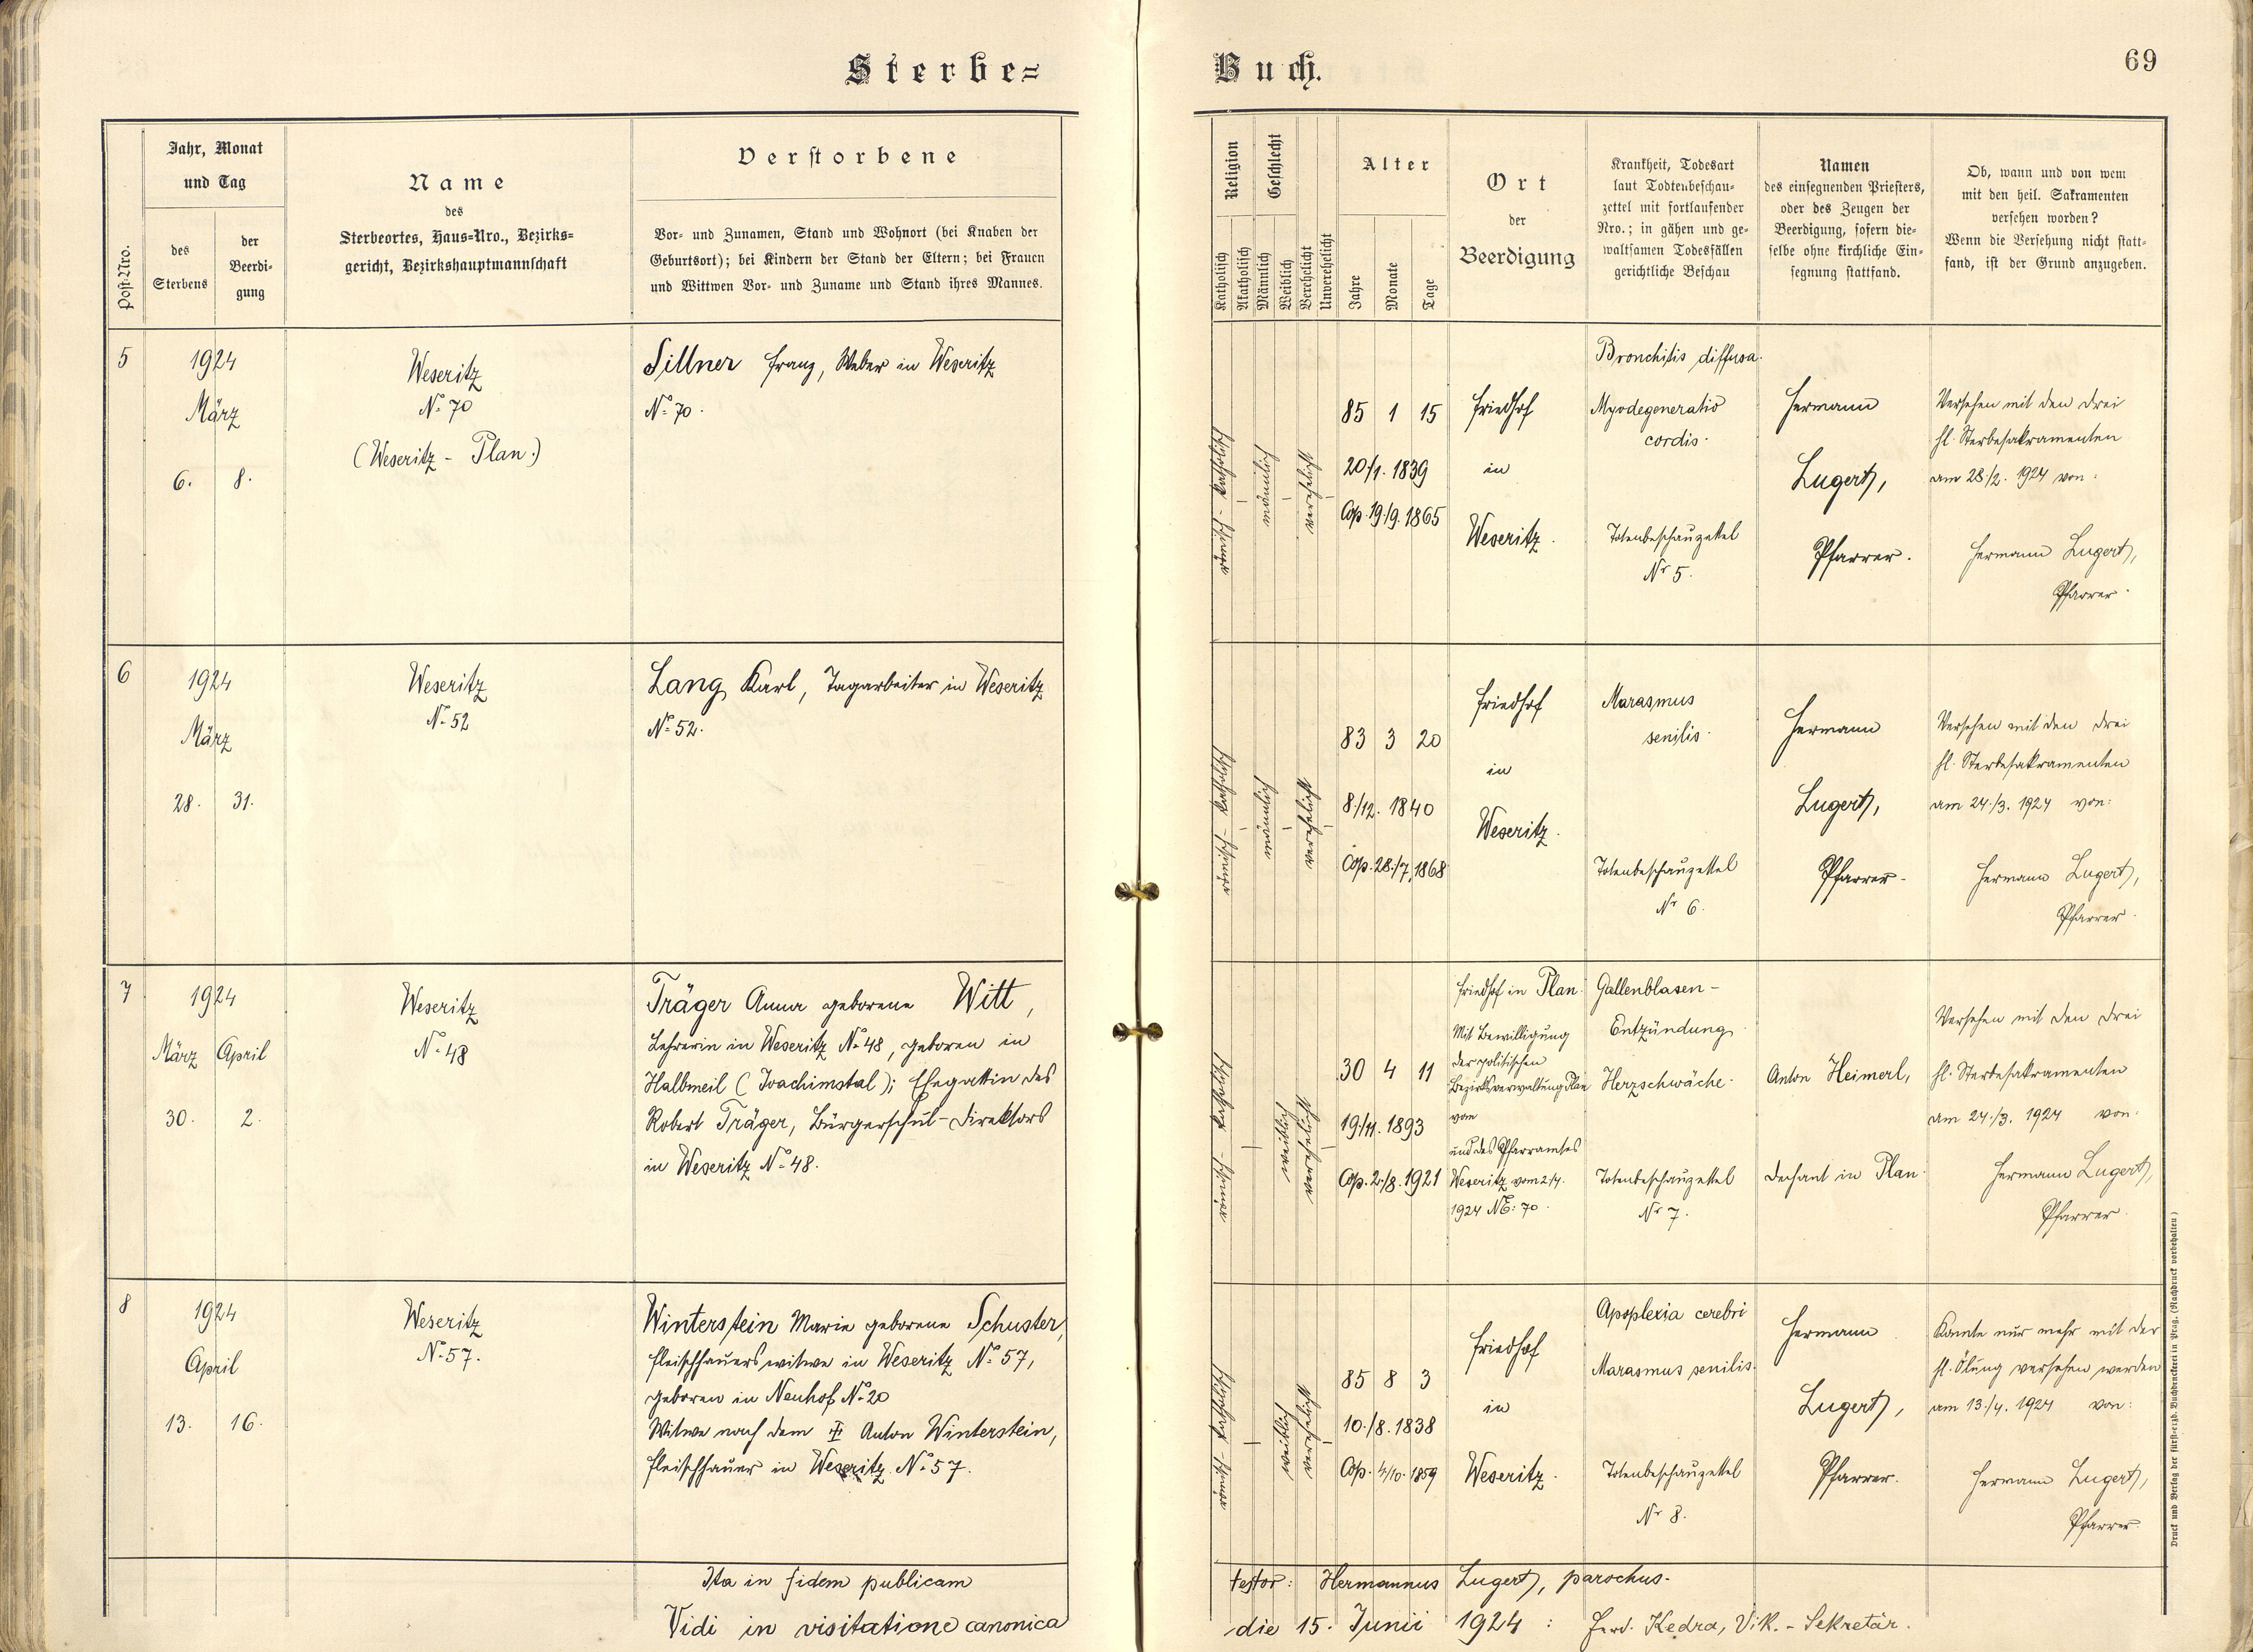 Sterbe=
Buch.
69
Post-Nro.
Jahr, Monat
und Tag
des
Sterbens
der
Beerdi-
gung
Name
des
Sterbeortes, Haus=Nro., Bezirks=
gericht, Bezirkshauptmannschaft
Verstorbene
Vor- und Zunamen, Stand und Wohnort (bei Knaben der
Geburtsort); bei Kindern der Stand der Eltern; bei Frauen
und Wittwen Vor- und Zuname und Stand ihres Mannes.
Religion
Katholisch
Akatholisch
Geschlecht
Männlich
Weiblich
Verehelicht
Unverehelicht
Alter
Jahre
Monate
Tage
Ort
der
Beerdigung
Krankheit, Todesart
laut Todtenbeschau-
zettel mit fortlaufender
Nro.; in gähen und ge-
waltsamen Todesfällen
gerichtliche Beschau
Namen
des einsegnenden Priesters,
oder des Zeugen der
Beerdigung, sofern die-
selbe ohne kirchliche Ein-
segnung stattfand.
Ob, wann und von wem
mit den heil. Sakramenten
versehen worden?
Wenn die Versehung nicht statt-
fand, ist der Grund anzugeben.
5
1924
März
6. 8.
Weseritz
No 70
(Weseritz - Plan.)
Sillner Franz, Weber in Weseritz
No 70.
katholisch
römisch
-
männlich
-
verehelicht
-
85 1 15
20./1. 1839
Cop. 19./9. 1865
Friedhof
in
Weseritz.
Bronchitis diffusa.
Myodegeneratio
cordis.
Totenbeschauzettel
Nr 5.
Hermann
Lugert,
Pfarrer.
Versehen mit den drei
hl. Sterbesakramenten
am 28./2. 1924 von:
Hermann Lugert,
Pfarrer.
6
1924
März
28. 31.
Weseritz
No 52
Lang Karl, Tagarbeiter in Weseritz
No 52.
katholisch
römisch
-
männlich
-
verehelicht
-
83 3 20
8./12. 1840
Cop. 28./7. 1868
Friedhof
in
Weseritz.
Marasmus
senilis.
Totenbeschauzettel
Nr 6.
Hermann
Lugert,
Pfarrer.
Versehen mit den drei
hl. Sterbesakramenten
am 24./3. 1924 von:
Hermann Lugert,
Pfarrer.
7
1924
März April
30. 2.
Weseritz
No 48
Träger Anna geborene Witt,
Lehrerin in Weseritz No 48, geboren in
Halbmeil (Joachimstal); Ehegattin des
Robert Träger, Bürgerschul-Direktors
in Weseritz No 48.
katholisch
römisch
-
weiblich
verehelicht
-
30 4 11
19./11. 1893
Cop. 2./8. 1921
Friedhof in Plan.
Mit Bewilligung
der politischen
Bezirksverwaltung Plan
vom
und des Pfarramtes
Weseritz vom 2/4.
1924 NE: 70.
Gallenblasen-
Entzündung.
Herzschwäche.
Totenbeschauzettel
Nr 7.
Anton Heimerl,
Dechant in Plan.
Versehen mit den drei
hl. Sterbesakramenten
am 24./3. 1924 von:
Hermann Lugert,
Pfarrer.
8
1924
April
13. 16.
Weseritz
No 57.
Winterstein Marie geborene Schuster,
Fleischhauerswitwe in Weseritz No 57,
geboren in Neuhof No 20
Witwe nach dem Anton Winterstein,
Fleischhauer in Weseritz No 57.
katholisch
römisch
-
weiblich
verehelicht
-
85 8 3
10./8. 1838
Cop. 4/10. 1859
Friedhof
in
Weseritz.
Apoplexia cerebri
Marasmus senilis.
Totenbeschauzettel
Nr 8.
Hermann
Lugert,
Pfarrer.
Konnte nur mehr mit der
hl. Ölung versehen werden
am 13./4. 1924 von:
Hermann Lugert,
Pfarrer.
Ita in fidem publicam testor: Hermannus Lugert, parochus.
Vidi in visitatione canonica die 15. Junii 1924: Ferd. Kedra, Vik.-Sekretär.
Druck und Verlag der fürst-erzb. Buchdruckerei in Prag. (Nachdruck vorbehalten)